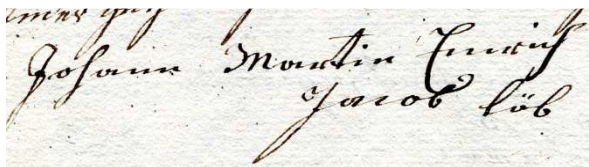 Johann Martin Emrich
Jacob Löb